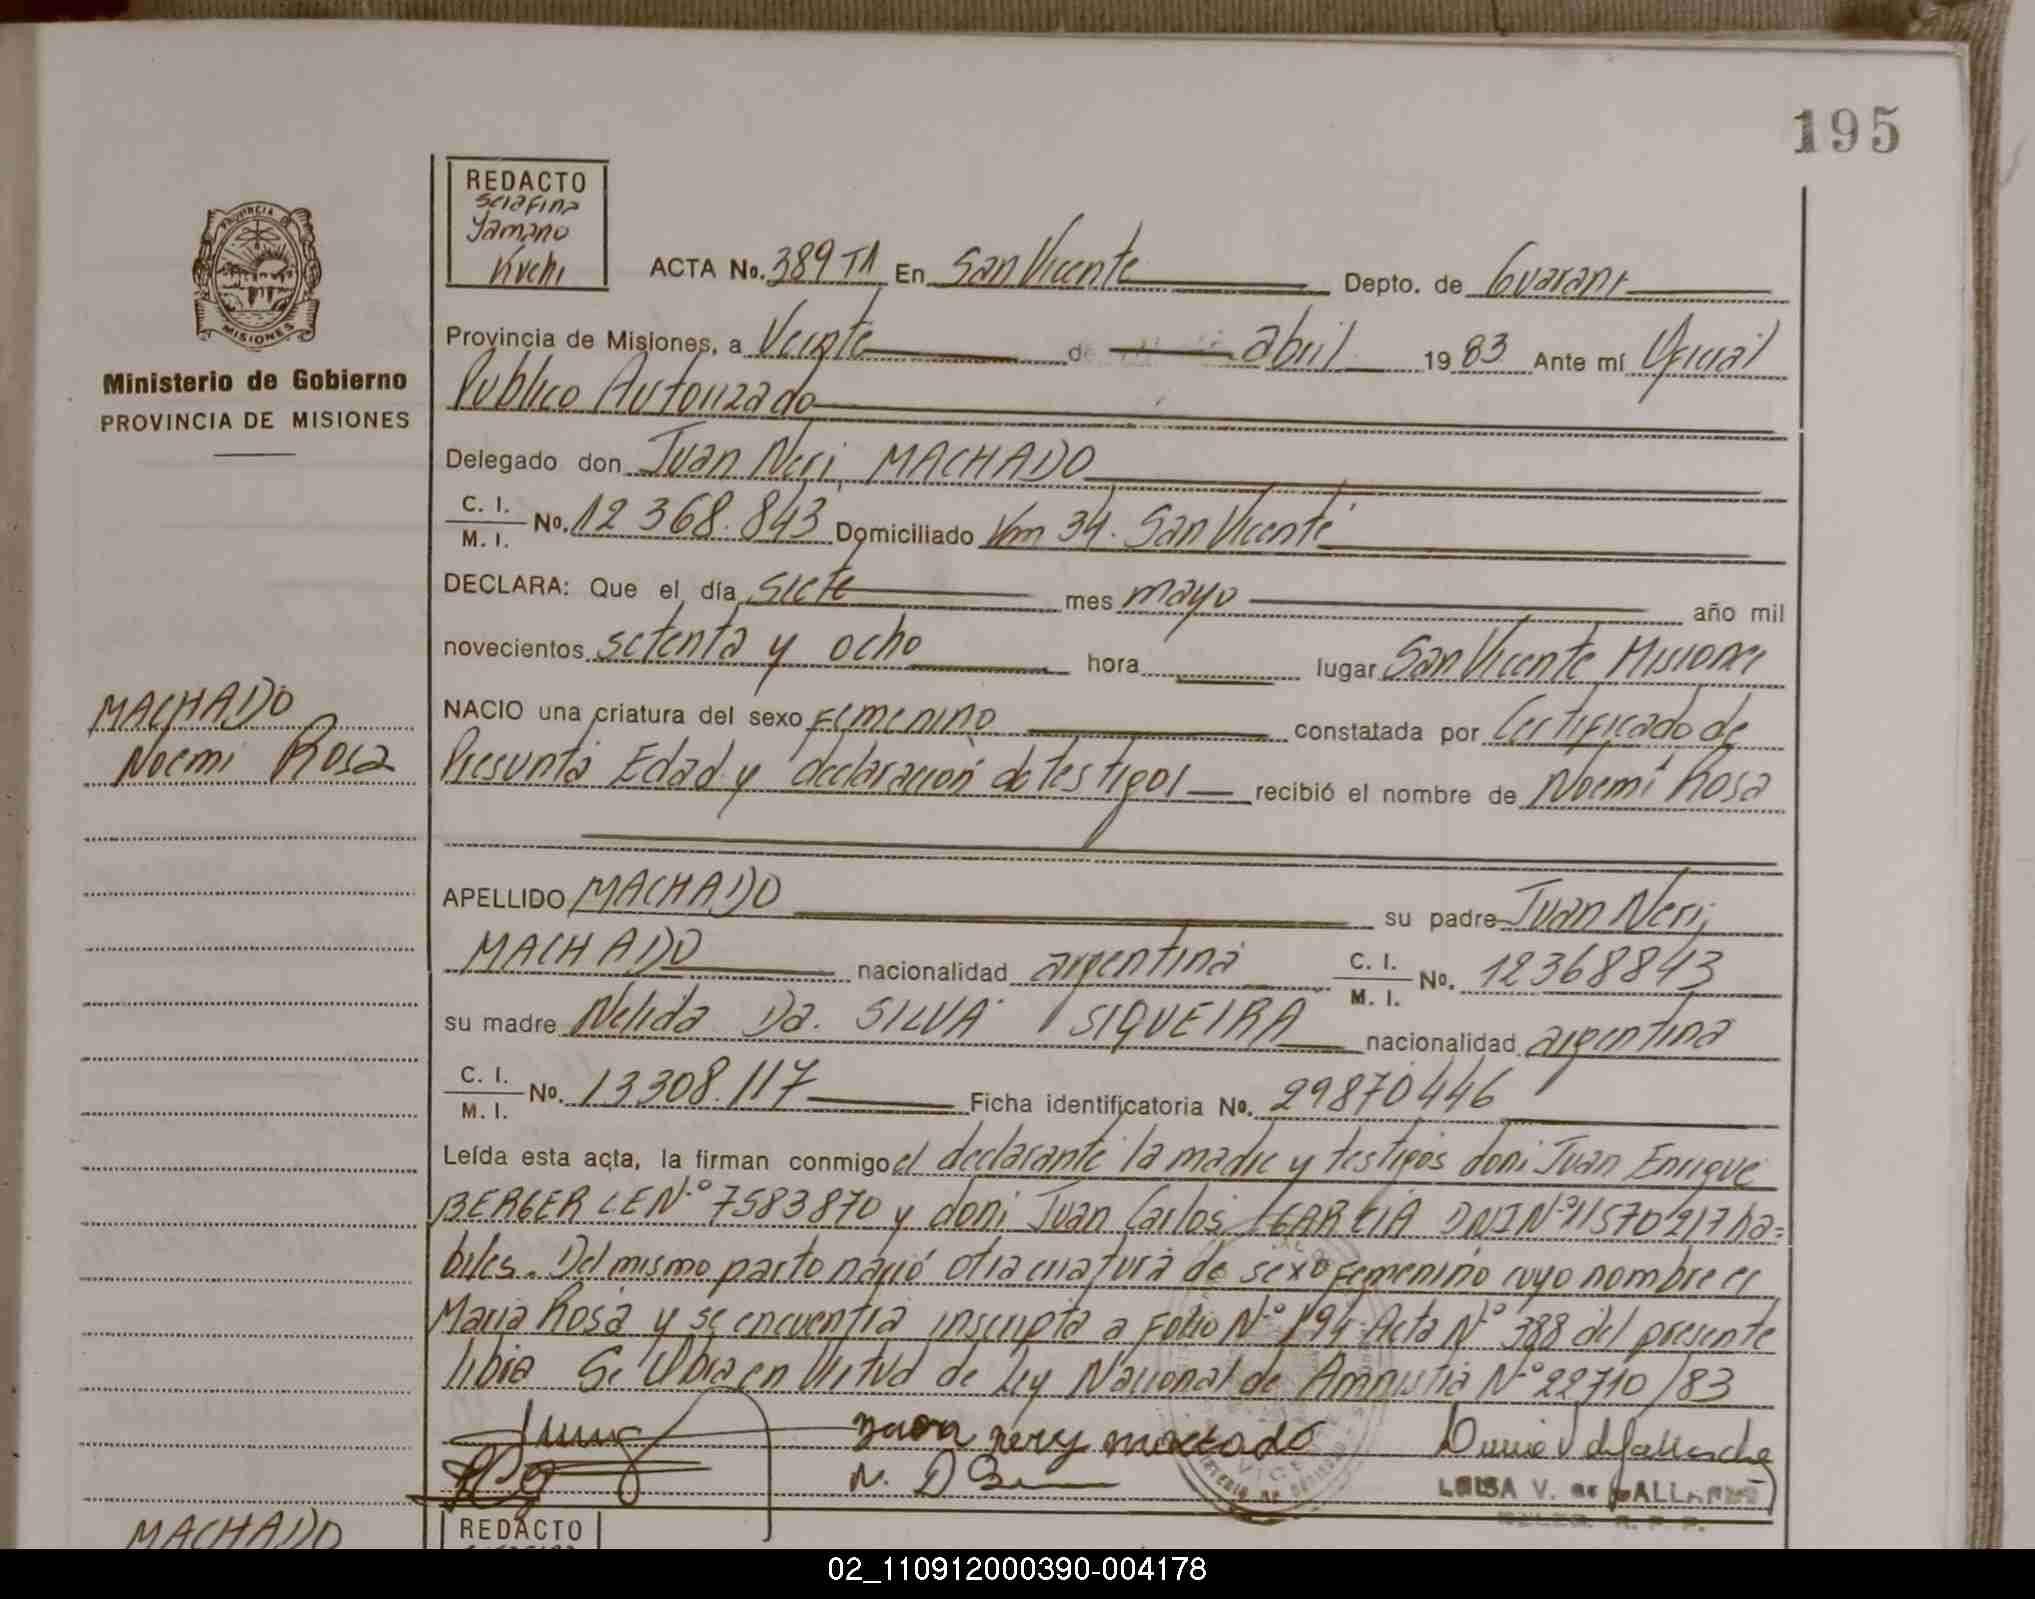 195
REDACTO
Serafina
Yamano
Kuchi
ACTA No. 389 TA En San Vicente Depto. de Guarani
Provincia de Misiones, a Veinte de abril 1983 Ante mí Oficial
Publico Autorizado
PROVINCIA DE
MISIONES
Ministerio de Gobierno
PROVINCIA DE MISIONES
Delegado don Juan Neri MACHADO
C. I.
M. I. No. 12 368.843 Domiciliado Km 34. San Vicente
DECLARA: Que el día siete mes mayo año mil
novecientos setenta y ocho hora lugar San Vicente Misiones
MACHADO
Noemi Rosa
NACIO una criatura del sexo Femenino constatada por Certificado de
Presunta Edad y declaración de testigos recibió el nombre de Noemi Rosa
APELLIDO MACHADO su padre Juan Neri
MACHADO nacionalidad argentina C. I.
M. I. No. 12368843
su madre Nelida Da. SILVA SIQUEIRA nacionalidad argentina
C. I.
M. I. No. 13.308.117 Ficha identificatoria No. 29870446
Leída esta acta, la firman conmigo el declarante la madre y testigos don: Juan Enrique
BERGER LE N.° 7583870 y don: Juan Carlos GARCIA DNI N° 11570217 ha=
biles. Del mismo parto nació otra criatura de sexo Femenino cuyo nombre es
Maria Rosa y se encuentra inscripta a Folio N° 194 Acta N° 388 del presente
libro Se labra en Virtud de Ley Nacional de Amnistia N° 22710/83
N. D S
LUISA V. de GALLARDO
MACHADO
REDACTO
02_110912000390-004178